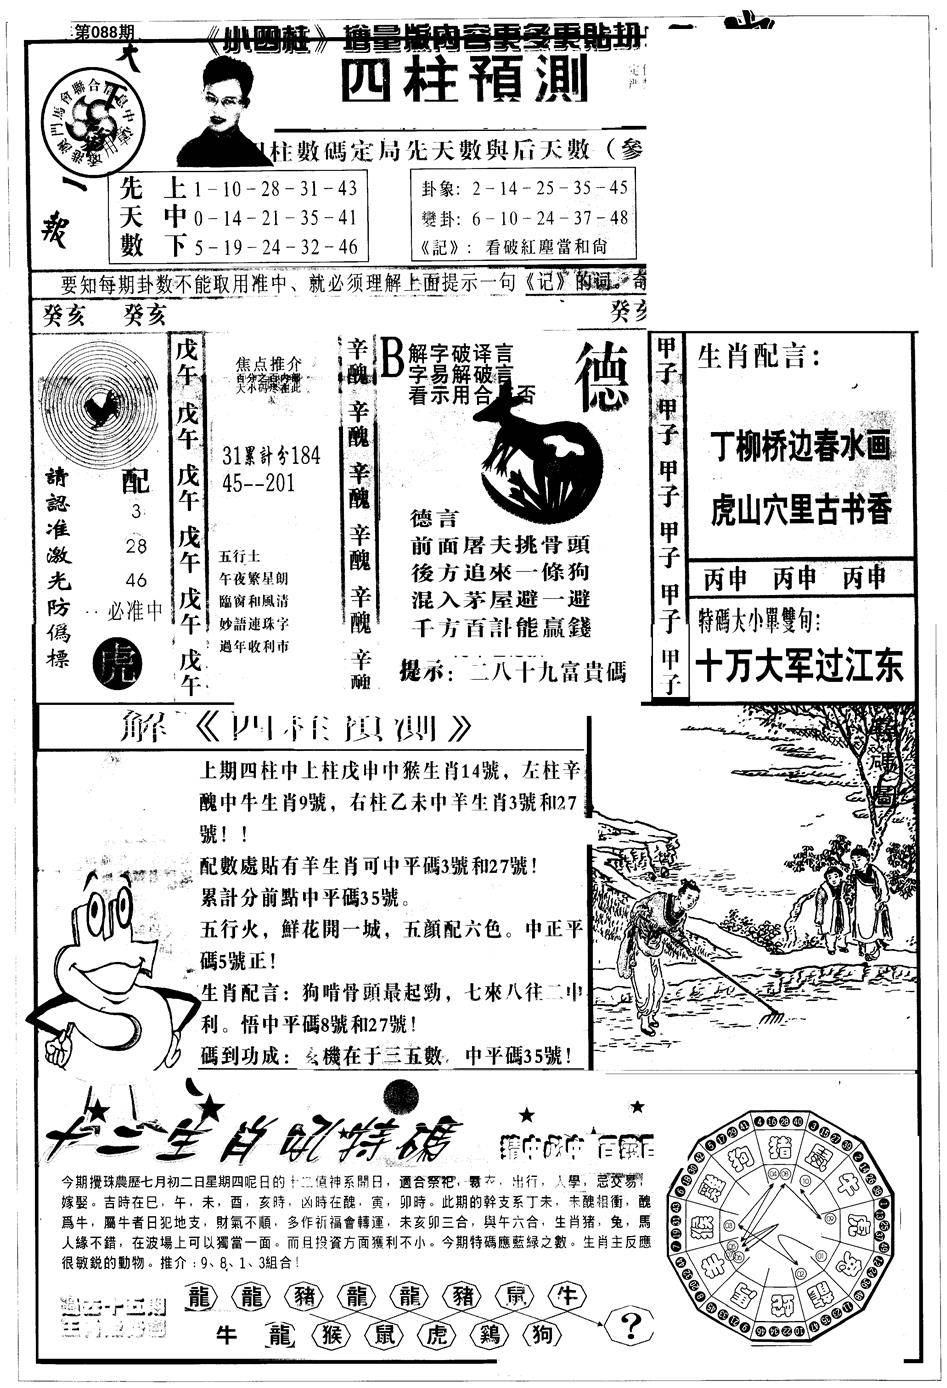 第088期
《小四柱》增量版内容更多更貼切
大
四柱預測
一
報
四柱數碼定局先天數與后天數（參
先 上 1-10-28-31-43
天 中 0-14-21-35-41
數 下 5-19-24-32-46
卦象: 2-14-25-35-45
變卦: 6-10-24-37-48
《記》: 看破紅塵當和尙
要知每期卦数不能取用准中、就必须理解上面提示一句《记》的词。奇
癸亥 癸亥 癸亥
請認准激光防僞標
配
3
28
46
必准中
虎
戊午 戊午 戊午 戊午 戊午 戊午
焦点推介
31累計分184
45--201
五行土
午夜繁星朗
臨窗和風清
妙語連珠字
過年收利市
辛醜 辛醜 辛醜 辛醜 辛醜 辛醜
B
解字破译言
字易解破言
看示用合 否
德
德言
前面屠夫挑骨頭
後方追來一條狗
混入茅屋避一避
千方百計能贏錢
提示: 二八十九富貴碼
甲子 甲子 甲子 甲子 甲子 甲子
生肖配言:
丁柳桥边春水画
虎山穴里古书香
丙申 丙申 丙申
特碼大小單雙句:
十万大军过江东
解《四柱預測》
上期四柱中上柱戊申中猴生肖14號，左柱辛
醜中牛生肖9號，右柱乙未中羊生肖3號和27
號！！
配數處貼有羊生肖可中平碼3號和27號!
累計分前點中平碼35號。
五行火，鮮花開一城，五顔配六色。中正平
碼5號正!
生肖配言: 狗啃骨頭最起勁，七來八往二中
利。悟中平碼8號和27號!
碼到功成: 玄機在于三五數。中平碼35號!
特碼圖
十二生肖呢特碼
今期攪珠農歷七月初二日星期四呢日的十二值神系開日，適合祭祀，竪衣，出行，入學，忌交易，
嫁娶。吉時在巳，午，未，酉，亥時，凶時在醜，寅，卯時。此期的幹支系丁未，未醜相衝，醜
爲牛，屬牛者日犯地支，財氣不順，多作祈福會轉運，未亥卯三合，與午六合，生肖猪，兔，馬
人緣不錯，在波場上可以獨當一面。而且投資方面獲利不小。今期特碼應藍緑之數。生肖主反應
很敏銳的動物。推介:9、8、1、3組合!
過去十五期
龍 龍 豬 龍 龍 豬 鼠 牛
牛 龍 猴 鼠 虎 鷄 狗
?